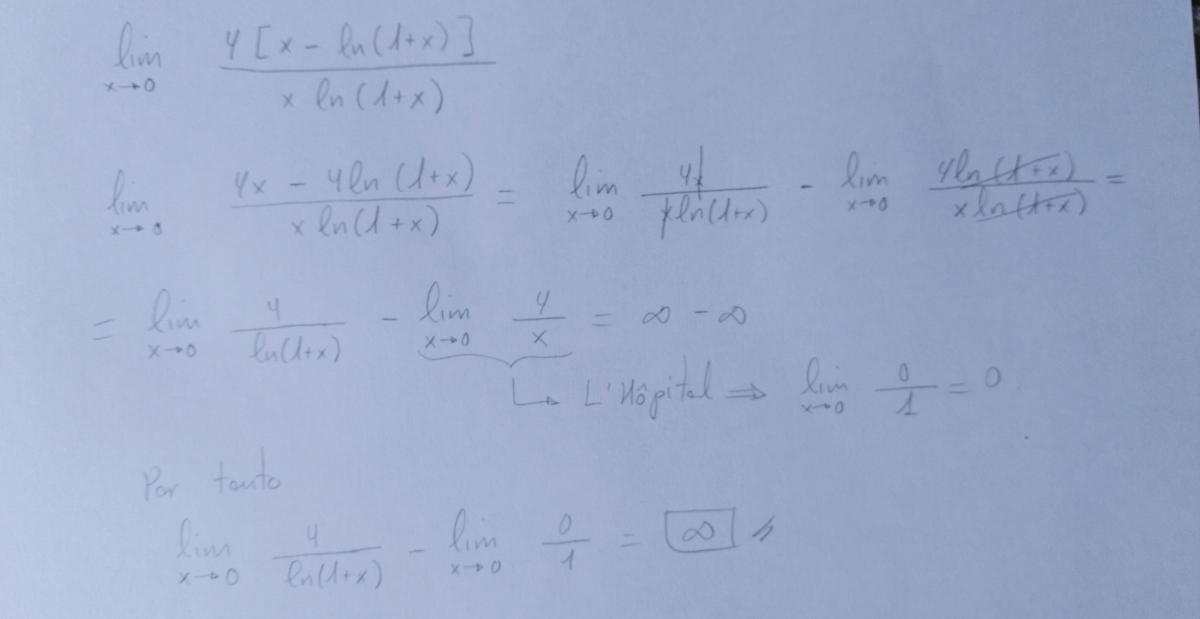 lim x→0 4[x - ln(1+x)] / x ln(1+x)
lim x→0 4x - 4ln(1+x) / x ln(1+x) = lim x→0 4x / x ln(1+x) - lim x→0 4ln(1+x) / x ln(1+x) =
= lim x→0 4 / ln(1+x) - lim x→0 4 / x = ∞ - ∞
↳ L'Hôpital ⇒ lim x→0 0 / 1 = 0
Por tanto
lim x→0 4 / ln(1+x) - lim x→0 0 / 1 = ∞ //